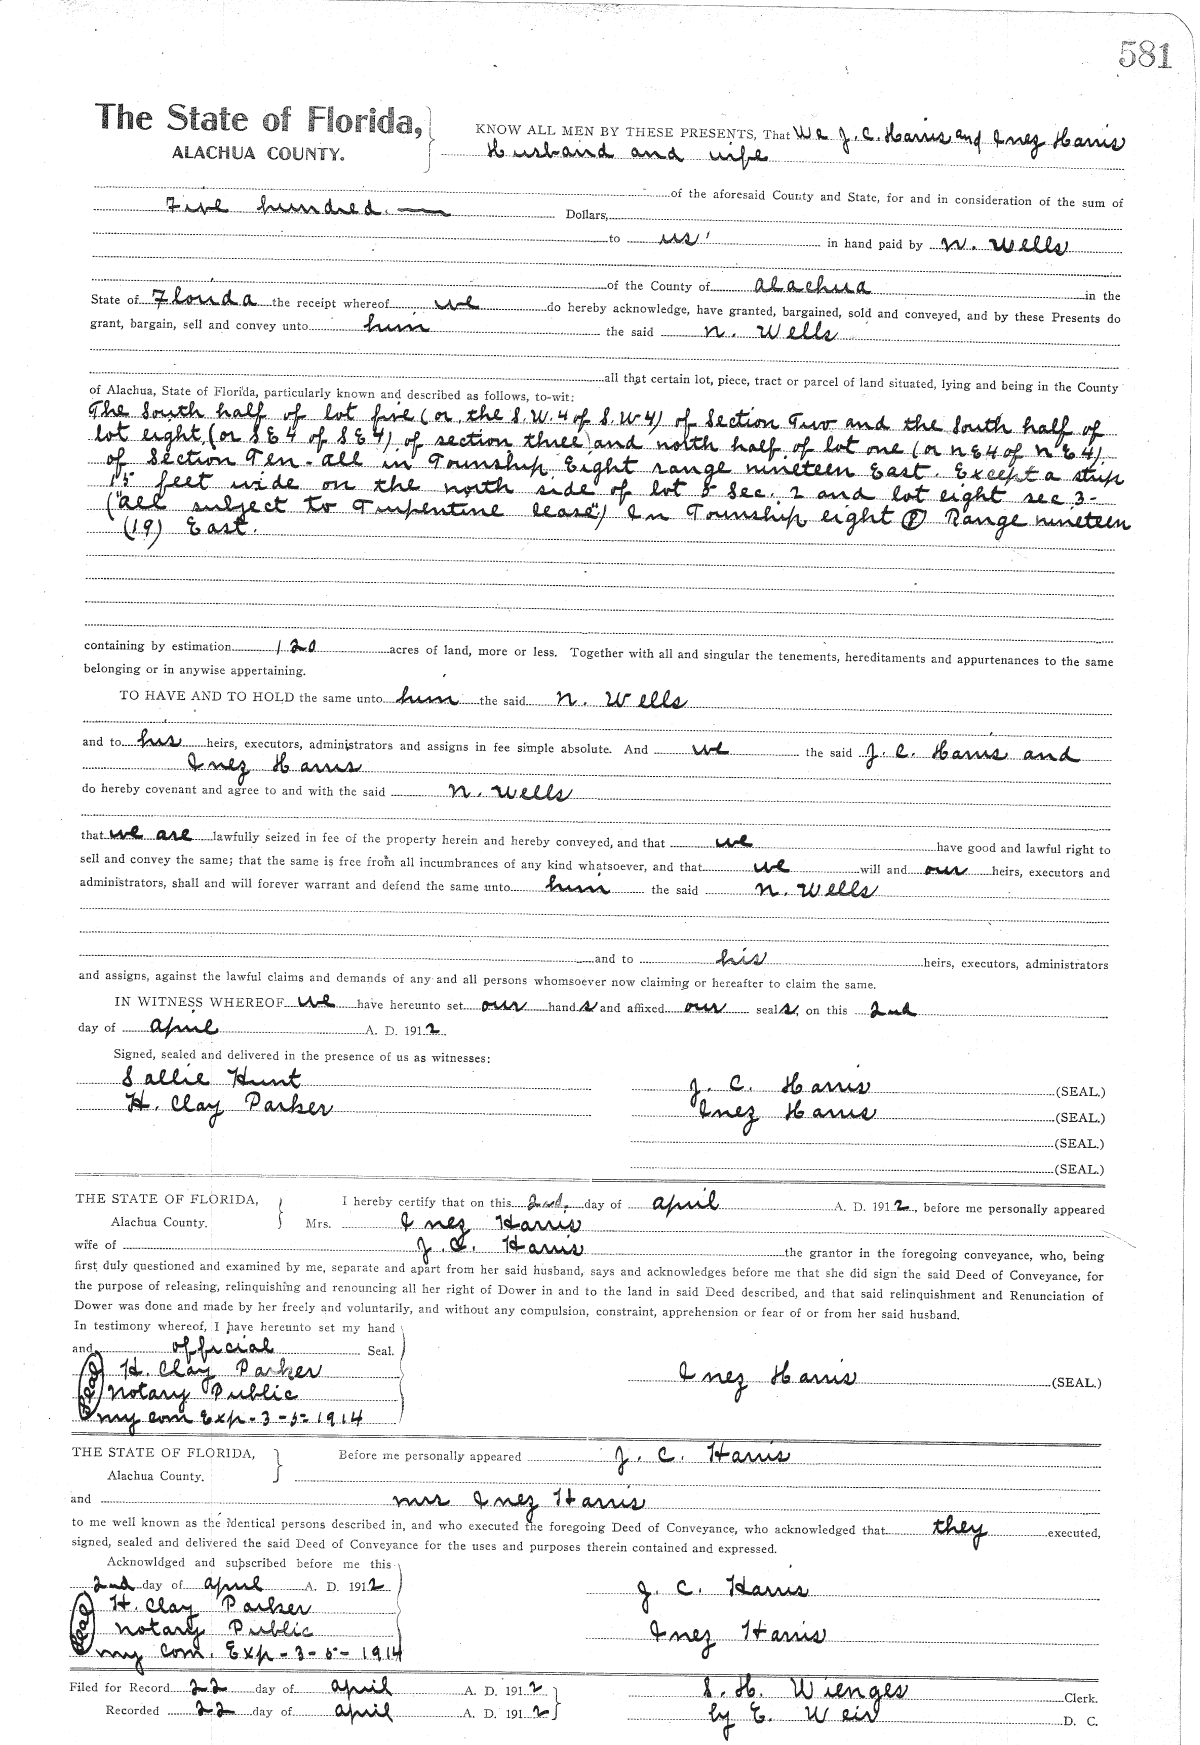 581
The State of Florida,
ALACHUA COUNTY.
KNOW ALL MEN BY THESE PRESENTS, That We J. C. Harris and Inez Harris
Husband and wife
of the aforesaid County and State, for and in consideration of the sum of
Five hundred. — Dollars,
to us in hand paid by N. Wells
of the County of Alachua in the
State of Florida the receipt whereof we do hereby acknowledge, have granted, bargained, sold and conveyed, and by these Presents do
grant, bargain, sell and convey unto him the said N. Wells
all that certain lot, piece, tract or parcel of land situated, lying and being in the County
of Alachua, State of Florida, particularly known and described as follows, to-wit:
The South half of lot five (or the S.W.4 of S.W4) of Section Two and the South half of
lot eight (or SE4 of SE4) of section three and north half of lot one (or NE4 of NE4)
of Section Ten - all in Township Eight range nineteen East. Except a strip
15 feet wide on the north side of lot 5 Sec. 2 and lot eight sec 3-
(All subject to Turpentine lease) In Township eight (8) Range nineteen
(19) East.
containing by estimation 120 acres of land, more or less. Together with all and singular the tenements, hereditaments and appurtenances to the same
belonging or in anywise appertaining.
TO HAVE AND TO HOLD the same unto him the said N. Wells
and to his heirs, executors, administrators and assigns in fee simple absolute. And we the said J. C. Harris and
Inez Harris
do hereby covenant and agree to and with the said N. Wells
that we are lawfully seized in fee of the property herein and hereby conveyed, and that we have good and lawful right to
sell and convey the same; that the same is free from all incumbrances of any kind whatsoever, and that we will and our heirs, executors and
administrators, shall and will forever warrant and defend the same unto him the said N. Wells
and to his heirs, executors, administrators
and assigns, against the lawful claims and demands of any and all persons whomsoever now claiming or hereafter to claim the same.
IN WITNESS WHEREOF we have hereunto set our hands and affixed our seals, on this 2nd
day of April A. D. 1912
Signed, sealed and delivered in the presence of us as witnesses:
Sallie Hunt J. C. Harris (SEAL.)
H. Clay Parker Inez Harris (SEAL.)
(SEAL.)
(SEAL.)
THE STATE OF FLORIDA, I hereby certify that on this 2nd, day of April A. D. 1912, before me personally appeared
Alachua County. Mrs. Inez Harris
wife of J. C. Harris the grantor in the foregoing conveyance, who, being
first duly questioned and examined by me, separate and apart from her said husband, says and acknowledges before me that she did sign the said Deed of Conveyance, for
the purpose of releasing, relinquishing and renouncing all her right of Dower in and to the land in said Deed described, and that said relinquishment and Renunciation of
Dower was done and made by her freely and voluntarily, and without any compulsion, constraint, apprehension or fear of or from her said husband.
In testimony whereof, I have hereunto set my hand
and official Seal.
H. Clay Parker Inez Harris (SEAL.)
Seal Notary Public
My Com Exp - 3 - 5 - 1914
THE STATE OF FLORIDA, Before me personally appeared J. C. Harris
Alachua County.
and Mrs Inez Harris
to me well known as the identical persons described in, and who executed the foregoing Deed of Conveyance, who acknowledged that they executed,
signed, sealed and delivered the said Deed of Conveyance for the uses and purposes therein contained and expressed.
Acknowldged and subscribed before me this
2nd day of April A. D. 1912 J. C. Harris
H. Clay Parker
Seal Notary Public Inez Harris
My Com. Exp - 3 - 5 - 1914
Filed for Record 22 day of April A. D. 1912 S. H. Wienges Clerk.
Recorded 22 day of April A. D. 1912 by E. Weir D. C.